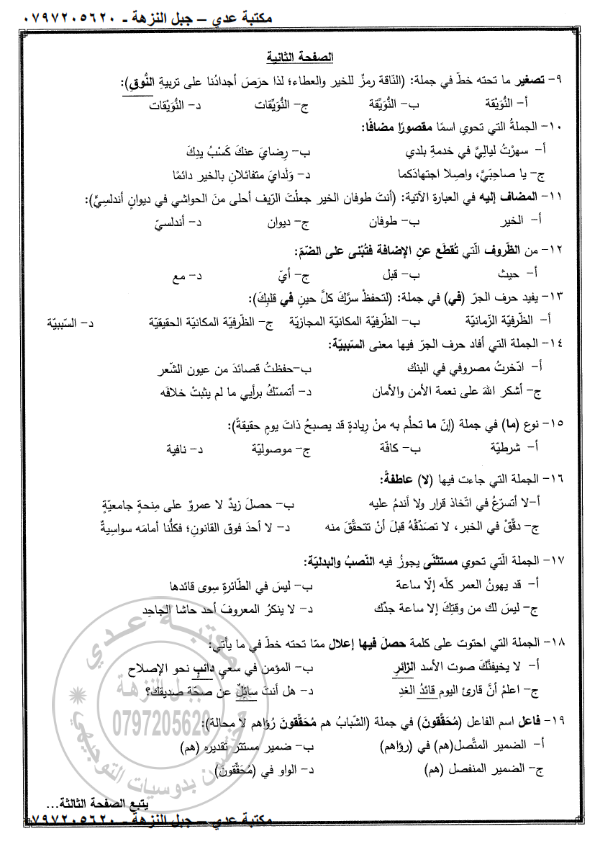 مكتبة عدي – جبل النزهة - ٠٧٩٧٢٠٥٦٢٠
الصفحة الثانية
٩- تصغير ما تحته خطّ في جملة: (النّاقة رمزٌ للخير والعطاء؛ لذا حرَصَ أجدادُنا على تربيةِ النُّوقِ):
أ- النُّوَيْقة ب- النُّوَيَّقة ج- النُّوَيْقات د- النُّوَيَّقات
١٠- الجملةُ التي تحوي اسمًا مقصورًا مضافًا:
أ- سهرْتُ لياليَّ في خدمةِ بلدي ب- رِضايَ عنكَ كَسْبُ يدِكَ
ج- يا صاحبَيَّ، واصِلا اجتهادَكما د- وَلَدايَ متفائلانِ بالخير دائمًا
١١- المضاف إليه في العبارة الآتية: (أنتَ طوفان الخير جعلْتَ الرّيف أحلى منَ الحواشي في ديوانٍ أندلسيٍّ):
أ- الخير ب- طوفان ج- ديوان د- أندلسيّ
١٢- من الظّروف الّتي تُقطَع عنِ الإضافة فتُبْنى على الضّمّ:
أ- حيث ب- قبل ج- أيّ د- مع
١٣- يفيد حرف الجرّ (في) في جملة: (لتحفظْ سرَّكَ كلَّ حينٍ في قلبِكَ):
أ- الظّرفيّة الزّمانيّة ب- الظّرفيّة المكانيّة المجازيّة ج- الظّرفيّة المكانيّة الحقيقيّة د- السّببيّة
١٤- الجملة التي أفاد حرف الجرّ فيها معنى السّببيّة:
أ- ادّخرتُ مصروفي في البنك ب- حفظتُ قصائدَ من عيون الشّعر
ج- أشكر اللهَ على نعمة الأمن والأمان د- أتمسّكُ برأيي ما لم يثبتْ خلافه
١٥- نوع (ما) في جملة (إنّ ما تحلُم به منْ رِيادةٍ قد يصبحُ ذاتَ يومٍ حقيقةً):
أ- شرطيّة ب- كافّة ج- موصوليّة د- نافية
١٦- الجملة التي جاءت فيها (لا) عاطفةً:
أ- لا أتسرّعُ في اتّخاذ قرار ولا أندمُ عليه ب- حصلَ زيدٌ لا عمروٌ على مِنحةٍ جامعيّةٍ
ج- دقّقْ في الخبر، لا تصدّقْهُ قبلَ أنْ تتحقّقَ منه د- لا أحدَ فوق القانونِ؛ فكلُّنا أمامَه سواسيةٌ
١٧- الجملة الّتي تحوي مستثنًى يجوزُ فيه النّصبُ والبدليّة:
أ- قد يهونُ العمر كلّه إلّا ساعة ب- ليسَ في الطّائرةِ سِوى قائدها
ج- ليسَ لك من وقتِكَ إلّا ساعة جدِّك د- لا ينكرُ المعروفَ أحد حاشا الجاحِد
١٨- الجملة الّتي احتوت على كلمة حصلَ فيها إعلال ممّا تحته خطّ في ما يأتي:
أ- لا يخيفنَّكَ صوت الأسد الزّائر ب- المؤمن في سعيٍ دائبٍ نحو الإصلاح
ج- اعلمْ أنَّ قارئ اليوم قائدُ الغدِ د- هل أنتَ سائلٌ عن صحّة صديقك؟
١٩- فاعل اسم الفاعل (مُحَقِّقونَ) في جملة (الشّبابُ هم مُحَقِّقونَ رُؤاهم لا محالة):
أ- الضمير المتّصل(هم) في (رؤاهم) ب- ضمير مستتر تقديره (هم)
ج- الضمير المنفصل (هم) د- الواو في (مُحَقِّقونَ)
مكتبة عدي
جبل النزهة
0797205620
بدوسيات التوجيهي
يتبع الصفحة الثالثة...
مكتبة عدي – جبل النزهة - ٠٧٩٧٢٠٥٦٢٠